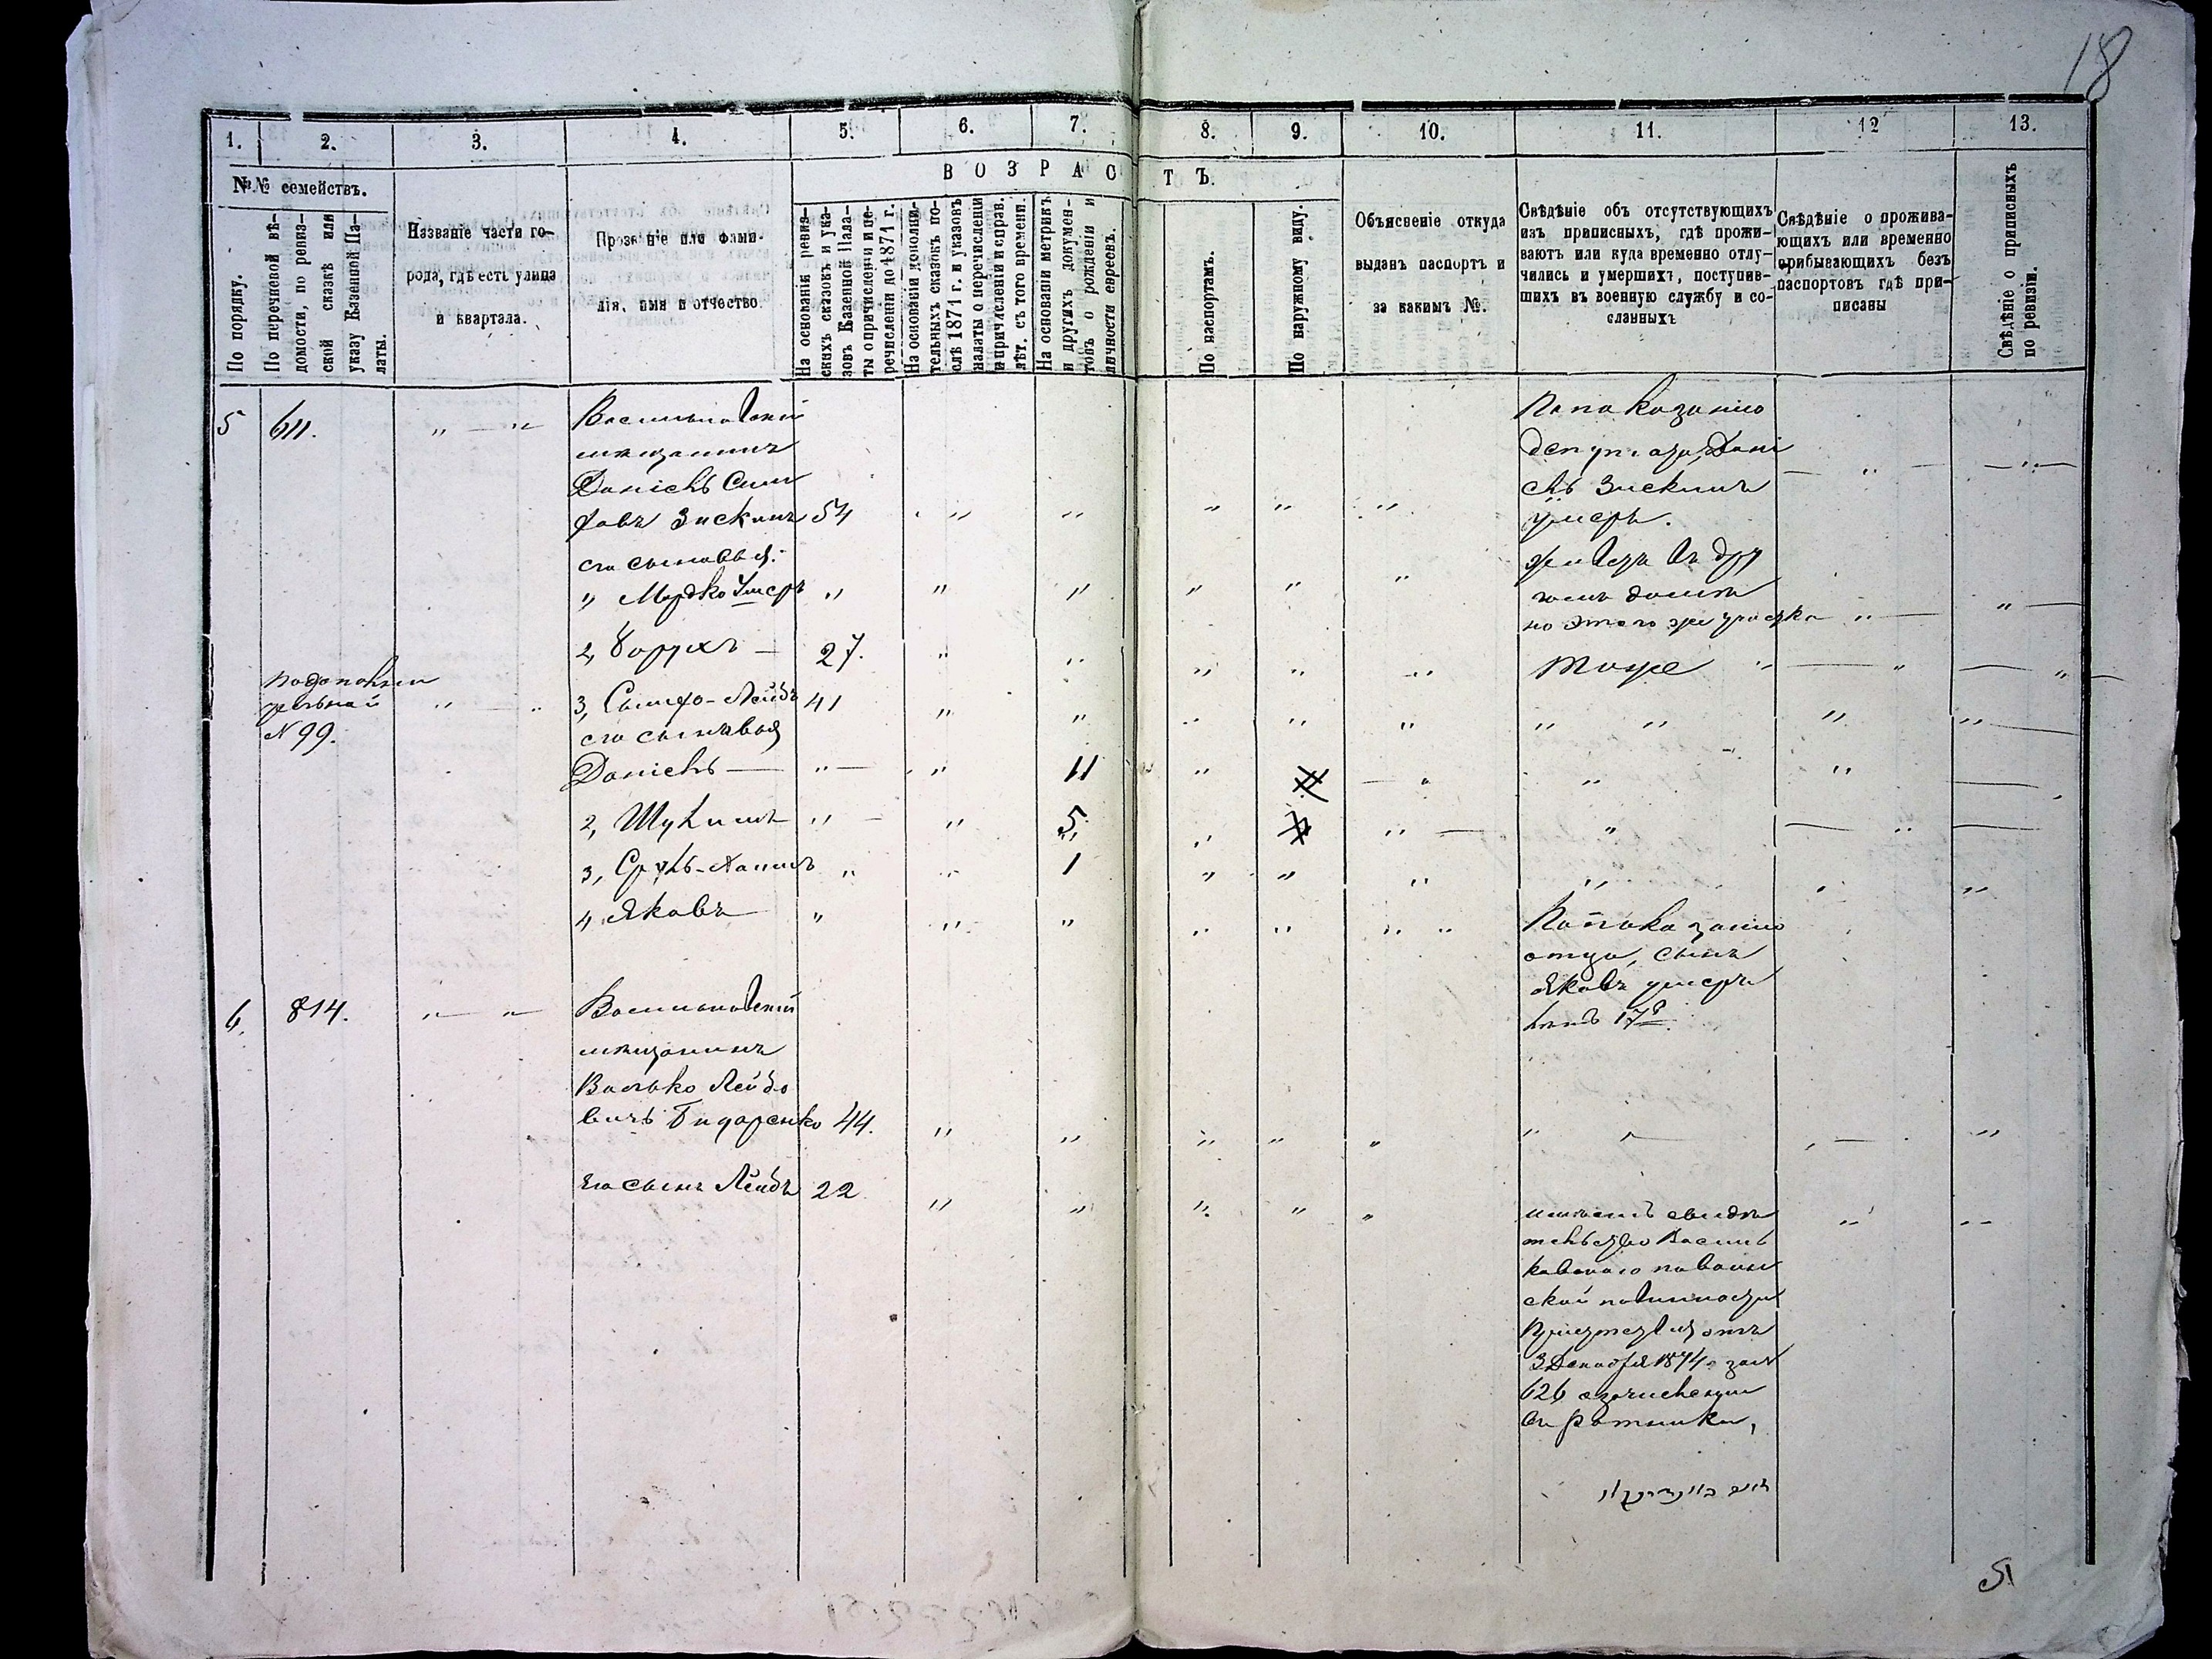 18
1. 2. 3. 4. 5. 6. 7. 8. 9. 10. 11. 12 13.
№№ семействъ.
ВОЗРАСТЪ.
По порядку.
По перечневой вѣ-
домости, по ревиз-
ской сказкѣ или
указу Казенной Па-
латы.
Названіе части го-
рода, гдѣ есть улица
и квартала.
Прозваніе или фами-
лія, имя и отчество.
На основаніи ревиз-
скихъ сказокъ и ука-
зовъ Казенной Пала-
ты о причисленіи и пе-
речисленіи до 1871 г.
На основаніи дополни-
тельныхъ сказокъ по-
слѣ 1871 г. и указовъ
палаты о перечисленіи
и причисленіи и справ.
лѣт. съ того времени.
На основаніи метрикъ
и другихъ докумен-
товъ о рожденіи и
личности евреевъ.
По паспортамъ.
По наружному виду.
Объясненіе откуда
выданъ паспортъ и
за какимъ №.
Свѣдѣніе объ отсутствующихъ
изъ приписныхъ, гдѣ прожи-
ваютъ или куда временно отлу-
чились и умершихъ, поступив-
шихъ въ военную службу и со-
сланныхъ
Свѣдѣніе о прожива-
ющихъ или временно
прибывающихъ безъ
паспортовъ гдѣ при-
писаны
Свѣдѣніе о приписныхъ
по ревизіи.
5 611. " — " Васильковскій
мѣщанинъ
Даніель Сим
ховъ Зискинъ 54
его сыновья:
1, Мордко Умеръ "
2, Борухъ — 27.
3, Симхо-Лейбъ 41
его сыновья
Даніель — " — 11
2, Шулимъ " 5
3, Сруль-Хаимъ " 1
4, Яковъ "
№ 99.
По показанію
депутата, Дані
ель Зискинъ
умеръ.
живетъ въ дру
гомъ домѣ
но этого же участка
тоже
По показанію
отца, сынъ
Яковъ умеръ
6. 814. " — " Васильковскій
мѣщанинъ
Волько Лейбо
вичъ Бидаренко 44.
Его сынъ Лейбъ 22
имѣетъ свидѣ
тельство Василь
ковскаго по воин
ской повинности
Присутствія отъ
3 Декабря 1874 г. за №
626 о зачисленіи
въ ратники,